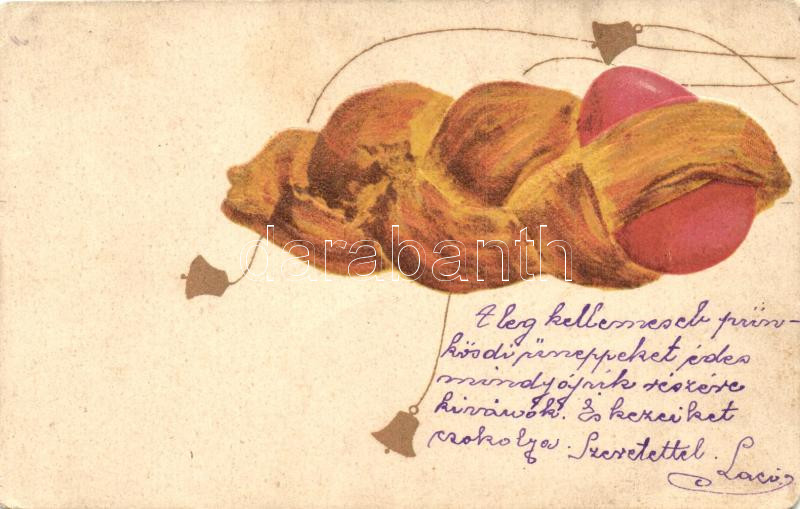 darabanth
A leg kellemeseb pün-
kösdi ünneppeket édes
mindnyájuk részére
kivánok. És kezeiket
csokolza. Szeretettel.
Laci.